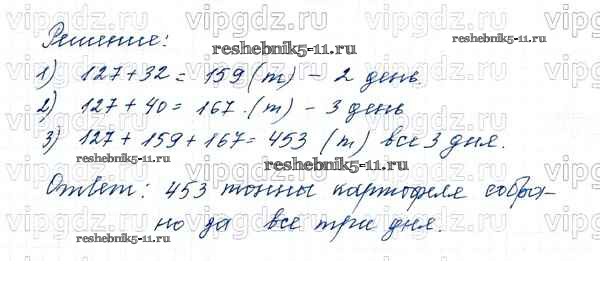 vipgdz.ru vipgdz.ru vipgdz.ru
Решение:
reshebnik5-11.ru
reshebnik5-11.ru
1) 127+32 = 159 (т) - 2 день
vipgdz.ru vipgdz.ru vipgdz.ru
2) 127 + 40 = 167 (т) - 3 день
3) 127 + 159 + 167 = 453 (т) все 3 дня.
vipgdz.ru vipgdz.ru vipgdz.ru
reshebnik5-11.ru
reshebnik5-11.ru
Ответ: 453 тонны картофеля собра-
но да все три дня.
vipgdz.ru vipgdz.ru vipgdz.ru
reshebnik5-11.ru